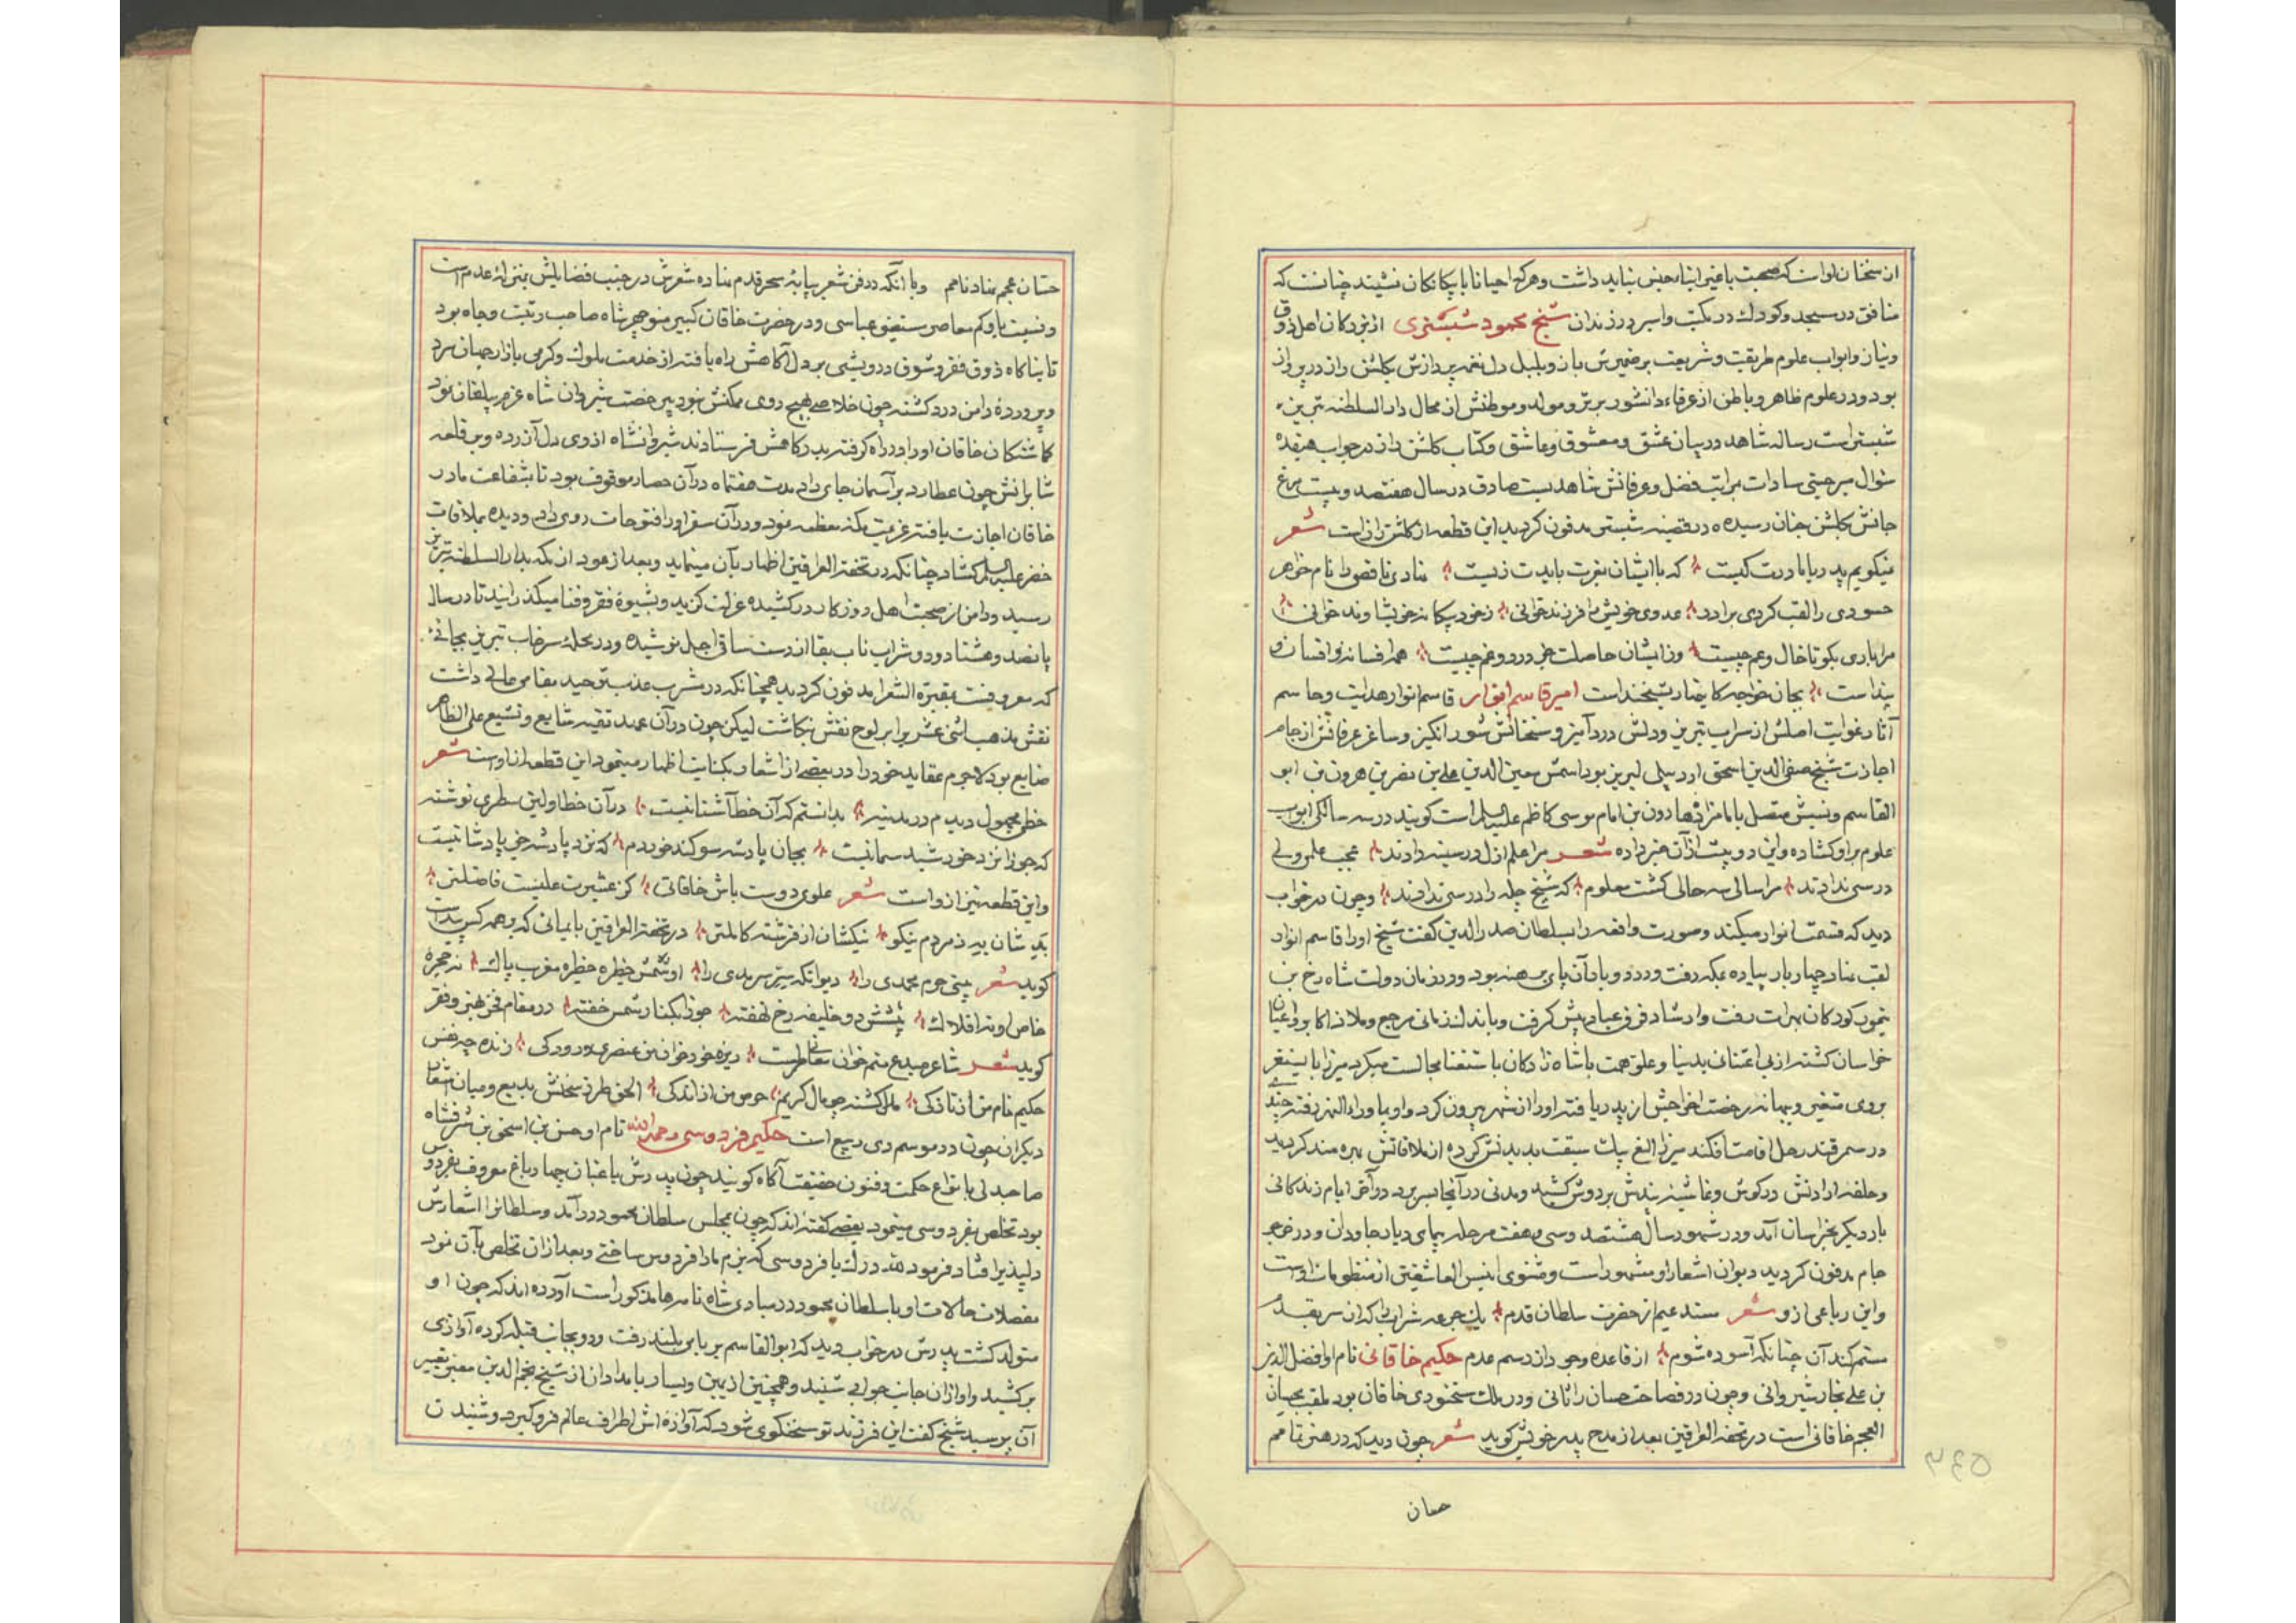 از سخنان اوست که صحبت با غیر ابناء جنس نباید داشت و هرکه احیانا با بیکانکان نشیند چنانست که
منافق در مسجد و کودک در مکتب و اسیر در زندان شیخ محمود شبستری از بزرکان اهل ذوق
و نیاز و ابواب علوم طریقت و شریعت بر ضمیرش باز و بلبل دل نغمه پردازش بکلشن راز در پرواز
بود و در علوم ظاهر و باطن از عرفاء دانشور برتر و مولد و موطنش از محال دار السلطنه تبریز
شبستر است رساله شاهد در بیان عشق و معشوق و عاشق و کتاب کلشن راز در جواب هفده
سؤال میر حسینی سادات بر مراتب فضل و عرفانش شاهدیست صادق در سال هفتصد و بیست مرغ
جانش بکلشن جنان رسیده در قصبه شبستر مدفون کردید این قطعه از کلشن راز است شعر
نمیکویم پدر یا مادرت کیست که با ایشان بعزت بایدت زیست نهادی ناقصی را نام خواهر
حسودی را لقب کردی برادر عدوی خویش را فرزند خوانی ز خود بیکانه خویشاوند خوانی
مرا باری بکو تا خال و عم چیست وز ایشان حاصلت جز درد و غم چیست همه افسانه و افسون و
بند است بجان خواجه کاینها ریشخند است امیر قاسم انوار قاسم انوار هدایت و حاسم
آثار غوایت اصلش از سراب تبریز و دلش دردآمیز و سخنانش شورانکیز و ساغر عرفانش از جام
اجازت شیخ صفی الدین اسحق اردبیلی لبریز بود اسمش معین الدین علی بن نصر بن هرون بن ابو
القاسم و نسبش متصل بامامزاده هارون بن امام موسی کاظم علیه السلم است کویند در سه سالکی ابواب
علوم بر او کشاده و این دو بیت از آن خبر داده شعر مرا علم ازل در سینه دادند عجب علمی ولی
درسی ندادند مرا سالی سه حالی کشت معلوم که شیخ چله را درسی ندادند و چون در خواب
دید که قسمت انوار میکند و صورت واقعه را بسلطان صدر الدین کفت شیخ او را قاسم انوار
لقب نهاد چهار بار پیاده بمکه رفت و دو بار آن پای برهنه بود و در زمان دولت شاه رخ بن
تیمور کورکان بهرات رفت و ارشاد فرق عباد پیش کرفت و باندک زمانی مرجع و ملاذ اکابر و اعیان
خراسان کشته از بی اعتنائی بدنیا و علو همت با شاهزادکان باستغنا مجالست میکرد میرزا بایسنغر
بر وی متغیر و بهانه رخصت اخراجش از پدر یافته او را از شهر بیرون کرد و او بماوراء النهر رفته چندی
در سمرقند رحل اقامت افکند میرزا الغ بیک سبقت بدیدنش کرده از ملاقاتش بهره مند کردید
و حلقه ارادتش در کوش و غاشیه بندکیش بر دوش کشید و مدتی در آنجا بسر برد در آخر ایام زندکانی
بار دیکر بخراسان آمد و در شهور سال هشتصد و سی و هفت مرحله پیمای دیار جاودان و در خرجرد
جام مدفون کردید دیوان اشعار او مشهور است و مثنوی انیس العاشقین از منظومات اوست
و این رباعی از و شعر مستدعیم از حضرت سلطان قدم یک جرعه شراب که از سر بقدم
مستم کند آن چنانکه آسوده شوم از قاعده وجود از رسم عدم حکیم خاقانی نام او افضل الدین
بن علی نجار شیروانی و چون در فصاحت حسان را ثانی و در ملک سخنوری خاقان بود ملقب بحسان
العجم خاقانی است در تحفة العراقین بعد از مدح پدر خویش کوید شعر چون دید که در هنر تمامم
حسان
حسان عجم نهاد نامم و با آنکه در فن شعر بپایه سحر قدم نهاده شعرش در جنب فضایلش بمنزله عدم است
و نسبت باو کم معاصر مستضئ عباسی و در حضرت خاقان کبیر منوچهر شاه صاحب رتبت و جاه بود
تا بناکاه ذوق فقر و شوق درویشی بر دل آکاهش راه یافته از خدمت ملوک و کرمی بازار جهان سرد
و پرورده دامن درد کشته چون خلاصی بهیچ روی ممکنش نبود بی رخصت شیروان شاه عزم بیلقان نمود
کماشتکان خاقان او را در راه کرفته بدرکاهش فرستادند شیروانشاه از وی دل آزرده و بر قلعه
شابرانش چون عطارد بر آسمان جای داد مدت هفت ماه در آن حصار موقوف بود تا بشفاعت مادر
خاقان اجازت یافته عزیمت مکه معظمه نمود و در آن سفر او را فتوحات روی داد و دیده بملاقات
خضر علیه السلم کشاد چنانکه در تحفة العراقین اظهار بآن مینماید و بعد از عود از مکه بدار السلطنه تبریز
رسید و دامن از صحبت اهل روزکار در کشیده عزلت کزید و بشیوه فقر و فنا میکذرانید تا در سال
پانصد و هشتاد و دو شراب ناب بقا از دست ساقی اجل نوشیده و در محله سرخاب تبریز بجائی
که معروفست بمقبرة الشعرا مدفون کردید همچنانکه در مشرب عذب توحید مقامی عالی داشت
نقش مذهب اثنی عشر را بر لوح نفس نکاشت لیکن چون در آن عهد تقیه شایع و تشیع علی الظاهر
ضایع بود لاجرم عقاید خود را در بعضی از اشعار بکنایت اظهار مینمود این قطعه از اوست شعر
خطی مجهول دیدم در مدینه بدانستم که آن خط آشنا نیست در آن خط اولین سطری نوشته
که جوزا نزد خورشید سما نیست بجان پادشه سوکند خوردم که نزد پادشه جز پادشا نیست
و این قطعه نیز از واست شعر علوی دوست باش خاقانی کز عشیرت علیست فاضلتر
بد شان به ز مردم نیکو نیکشان از فرشته کاملتر در تحفة العراقین بایمائی که بر همه کس پیداست
کوید شعر بینی حرم محمدی را دیوانکه ستر سرمدی را او شمس خطیره خطیره مغرب پاک نه حجره
خاص او نه افلاک پیشش دو خلیفه رخ نهفته جوزا بکنار شمس خفته در مقام فخر بهنر و فقر
کوید شعر شاعر مبدع منم خوان معانی مراست ریزه خور خوان من عنصری و رودکی زنده چو نفس
حکیم نام من از تازکی ملک کشته چو مال کریم حرص من از اندکی الحق طرز سخنش بدیع و میان اشعار
دیکران چون در موسم دی ربیع است حکیم فردوسی رحمه الله نام او حسن بن اسحق بن شرفشاه
صاحبدلی بانواع حکمت و فنون حقیقت آکاه کویند چون پدرش باغبان چهار باغ معروف بفردوس
بود تخلص بفردوسی مینمود بعضی کفته اند که چون بمجلس سلطان محمود درآمد و سلطانرا اشعارش
دلپذیر افتاد فرمود لله درک یا فردوسی که بزم ما را فردوس ساختی و بعد از آن تخلص بآن نمود
مفصلات حالات او با سلطان محمود در مبادی شاه نامه ها مذکور است آورده اند که چون او
متولد کشت پدرش در خواب دید که ابو القاسم بر بامی بلند رفت و رو بجانب قبله کرده آوازی
برکشید و او از آن جانب جوابی شنید و همچنین از یمین و یسار بامدادان از شیخ نجم الدین معبر تعبیر
آن پرسید شیخ کفت این فرزند تو سخنکوی شود که آوازه اش اطراف عالم فرو کیرد و شنیدن